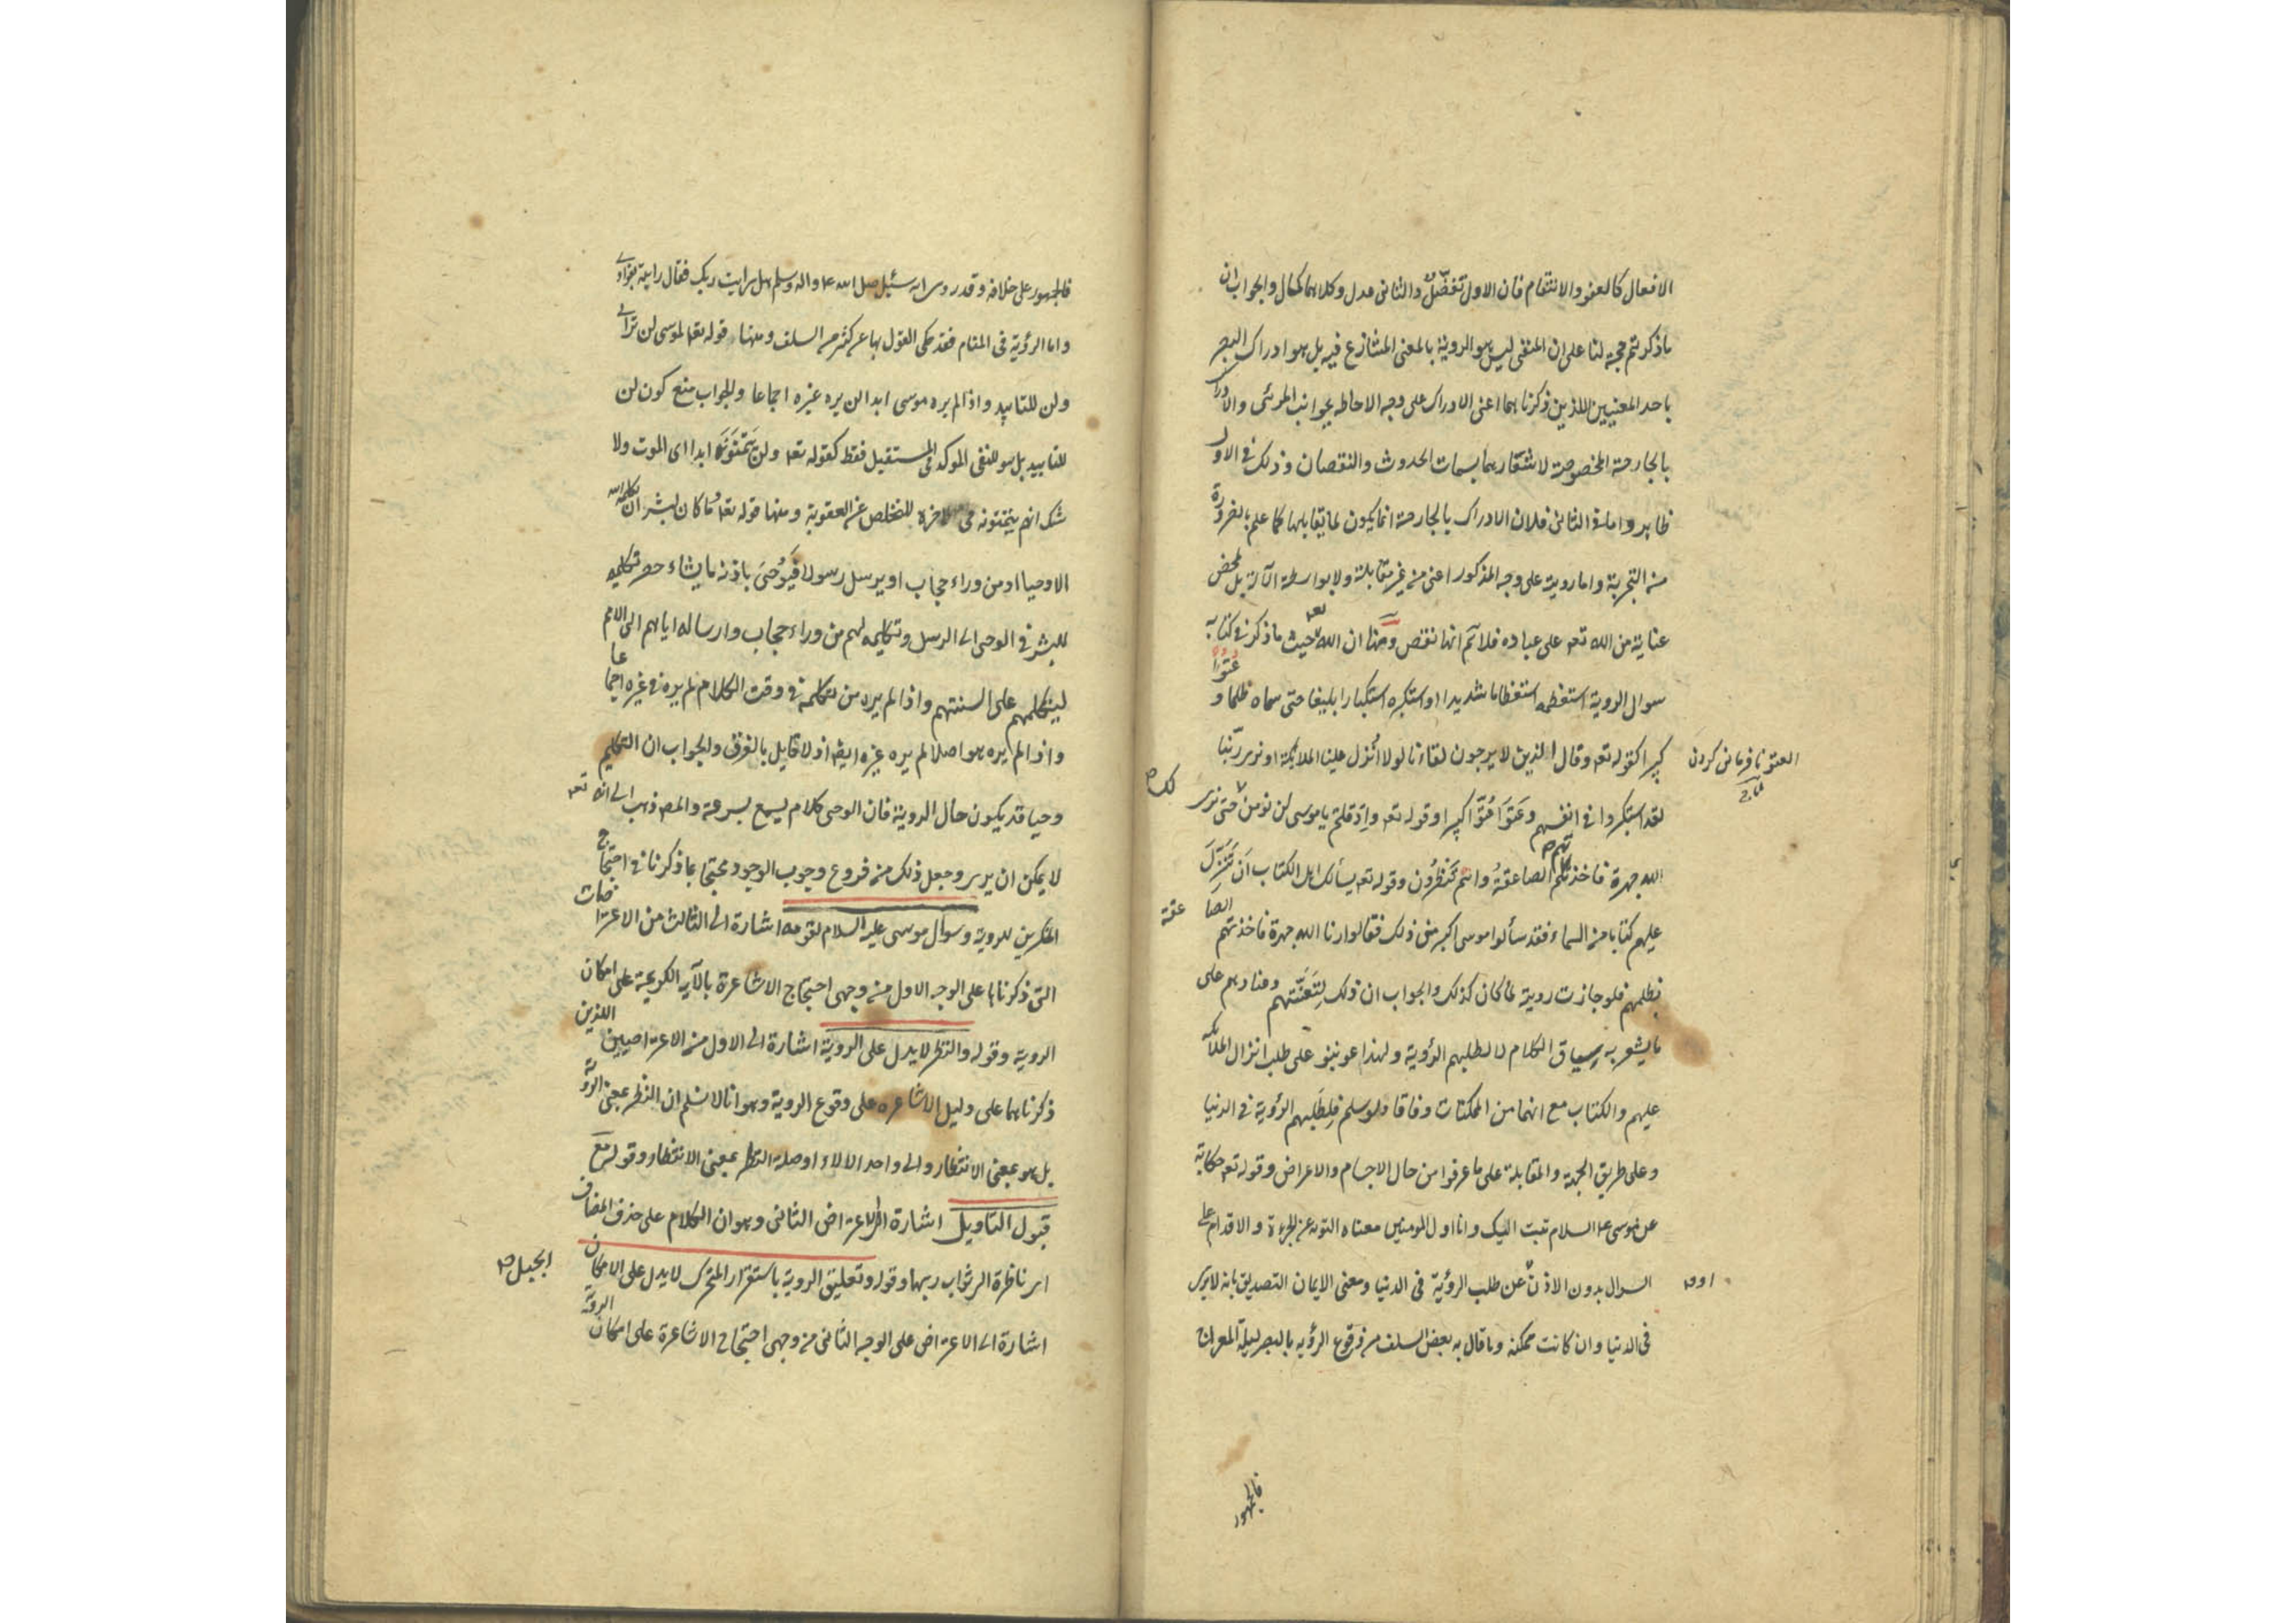 الافعال كالعفو والانتقام فان الاول تفضّل والثانى عدل وكلاهما كمال والجواب ان
ما ذكرتم حجة لنا على ان المنفى ليس هو الروية بالمعنى المتنازع فيه بل هو ادراك البصر
باحد المعنيين اللذين ذكرناهما اعنى الادراك على وجه الاحاطه بجوانب المرئى والادراك
بالجارحة المخصوصة لاشعارهما بسمات الحدوث والنقصان وذلك فى الاول
ظاهر واما فى الثانى فلان الادراك بالجارحة انما يكون لما يقابلها كما علم بالضرورة
من التجربة واما روية على وجه المذكور اعنى من غير مقابلة ولا بواسطة الآلة بل بمحض
عناية من الله تعه على عباده فلا نم انها نقص ومنها ان الله تعه حيث ما ذكر فى كتابه
سوال الروية استعظمه استعظاما شديدا واستكبره استكبارا بليغا حتى سماه ظلما وعتوّا
كبيرا كقوله تعه وقال الذين لا يرجون لقاءنا لولا انزل علينا الملائكة او نرى ربنا
العتو نافرمانى كردن
تاج
لقد استكبروا فى انفسهم وعتوا عتوّا كبيرا وقوله تعه واذ قلتم يا موسى لن نومن لك حتى نرى
الله جهرة فاخذتكم الصاعقة وانتم تنظرون وقوله تعه يسألك اهل الكتاب ان تنزل
عليهم كتابا من السماء فقد سألوا موسى اكبر من ذلك فقالوا ارنا الله جهرة فاخذتهم الصاعقة
بظلمهم فلو جازت روية لما كان كذلك والجواب ان ذلك لتعنتهم وعنادهم على
ما يشعر به سياق الكلام لا لطلبهم الرؤية ولهذا عوتبوا على طلب انزال الملائكة
عليهم والكتاب مع انهما من الممكنات وفاقا ولو سلم فلطلبهم الرؤية فى الدنيا
وعلى طريق الجهة والمقابلة على ما عرفوا من حال الاجسام والاعراض وقوله تعه حكاية
عن موسى ع السلام تبت اليك وانا اول المومنين معناه التوبه عن الجرءة والاقدام على
السوال بدون الاذن او عن طلب الرؤية فى الدنيا ومعنى الايمان التصديق بانه لا يرى
فى الدنيا وان كانت ممكنه وما قال به بعض السلف من وقوع الرؤيه بالبصر ليلة المعراج
فالجمهور
فالجمهور على خلافه وقد روى انه سئيل صلى الله ع واله وسلم هل رايت ربك فقال رايته بفوادى
واما الرؤية فى المنام فقد حكى القول بها عن كثير من السلف ومنها قوله تعه لموسى لن ترانى
ولن للتابيد واذا لم يره موسى ابدا لن يره غيره اجماعا والجواب منع كون لن
للتابيد بل هو للنفى الموكد فى المستقبل فقط كقوله تعه ولن يتمنوه ابدا اى الموت ولا
شك انهم يتمنونه فى الاخرة للتخلص عن العقوبة ومنها قوله تعه وما كان لبشر ان يكلمه الله
الا وحيا او من وراء حجاب او يرسل رسولا فيوحى باذنه ما يشاء حصر تكليمه
للبشر فى الوحى الى الرسل وتكليمه لهم من وراء حجاب وارساله اياهم الى الامم
ليتكلمهم على السنتهم واذا لم يره من يكلمه فى وقت الكلام لم يره فى غيره اجماعا
واذا لم يره هو اصلا لم يره غيره ايضه اذ لا قايل بالفرق والجواب ان التكليم
وحيا قد يكون حال الروية فان الوحى كلام يسمع بسرعة والمصه ذهب الى انه تعه
لا يمكن ان يرى وجعل ذلك من فروع وجوب الوجود محتجا بما ذكرنا فى احتجاج
المنكرين للروية وسوال موسى عليه السلام لقومه اشارة الى الثالث من الاعتراضات
التى ذكرناها على الوجه الاول من وجهى احتجاج الاشاعرة بالآيه الكريمة على امكان
الروية وقوله والنظر لا يدل على الروية اشارة الى الاول من الاعتراضيين اللذين
ذكرناهما على دليل الاشاعره على وقوع الروية وهو انا لا نسلم ان النظر بمعنى الروية
بل هو بمعنى الانتظار والى واحد الالاء او صلة النظر بمعنى الانتظار وقوله مع
قبول التاويل اشارة الى الاعتراض الثانى وهو ان الكلام على حذف المضاف
اى ناظرة الى ثواب ربها وقوله وتعليق الروية باستقرار المتحرك لا يدل على الامكان
الجبل صه
اشارة الى الاعتراض على الوجه الثانى من وجهى احتجاج الاشاعرة على امكان الروية